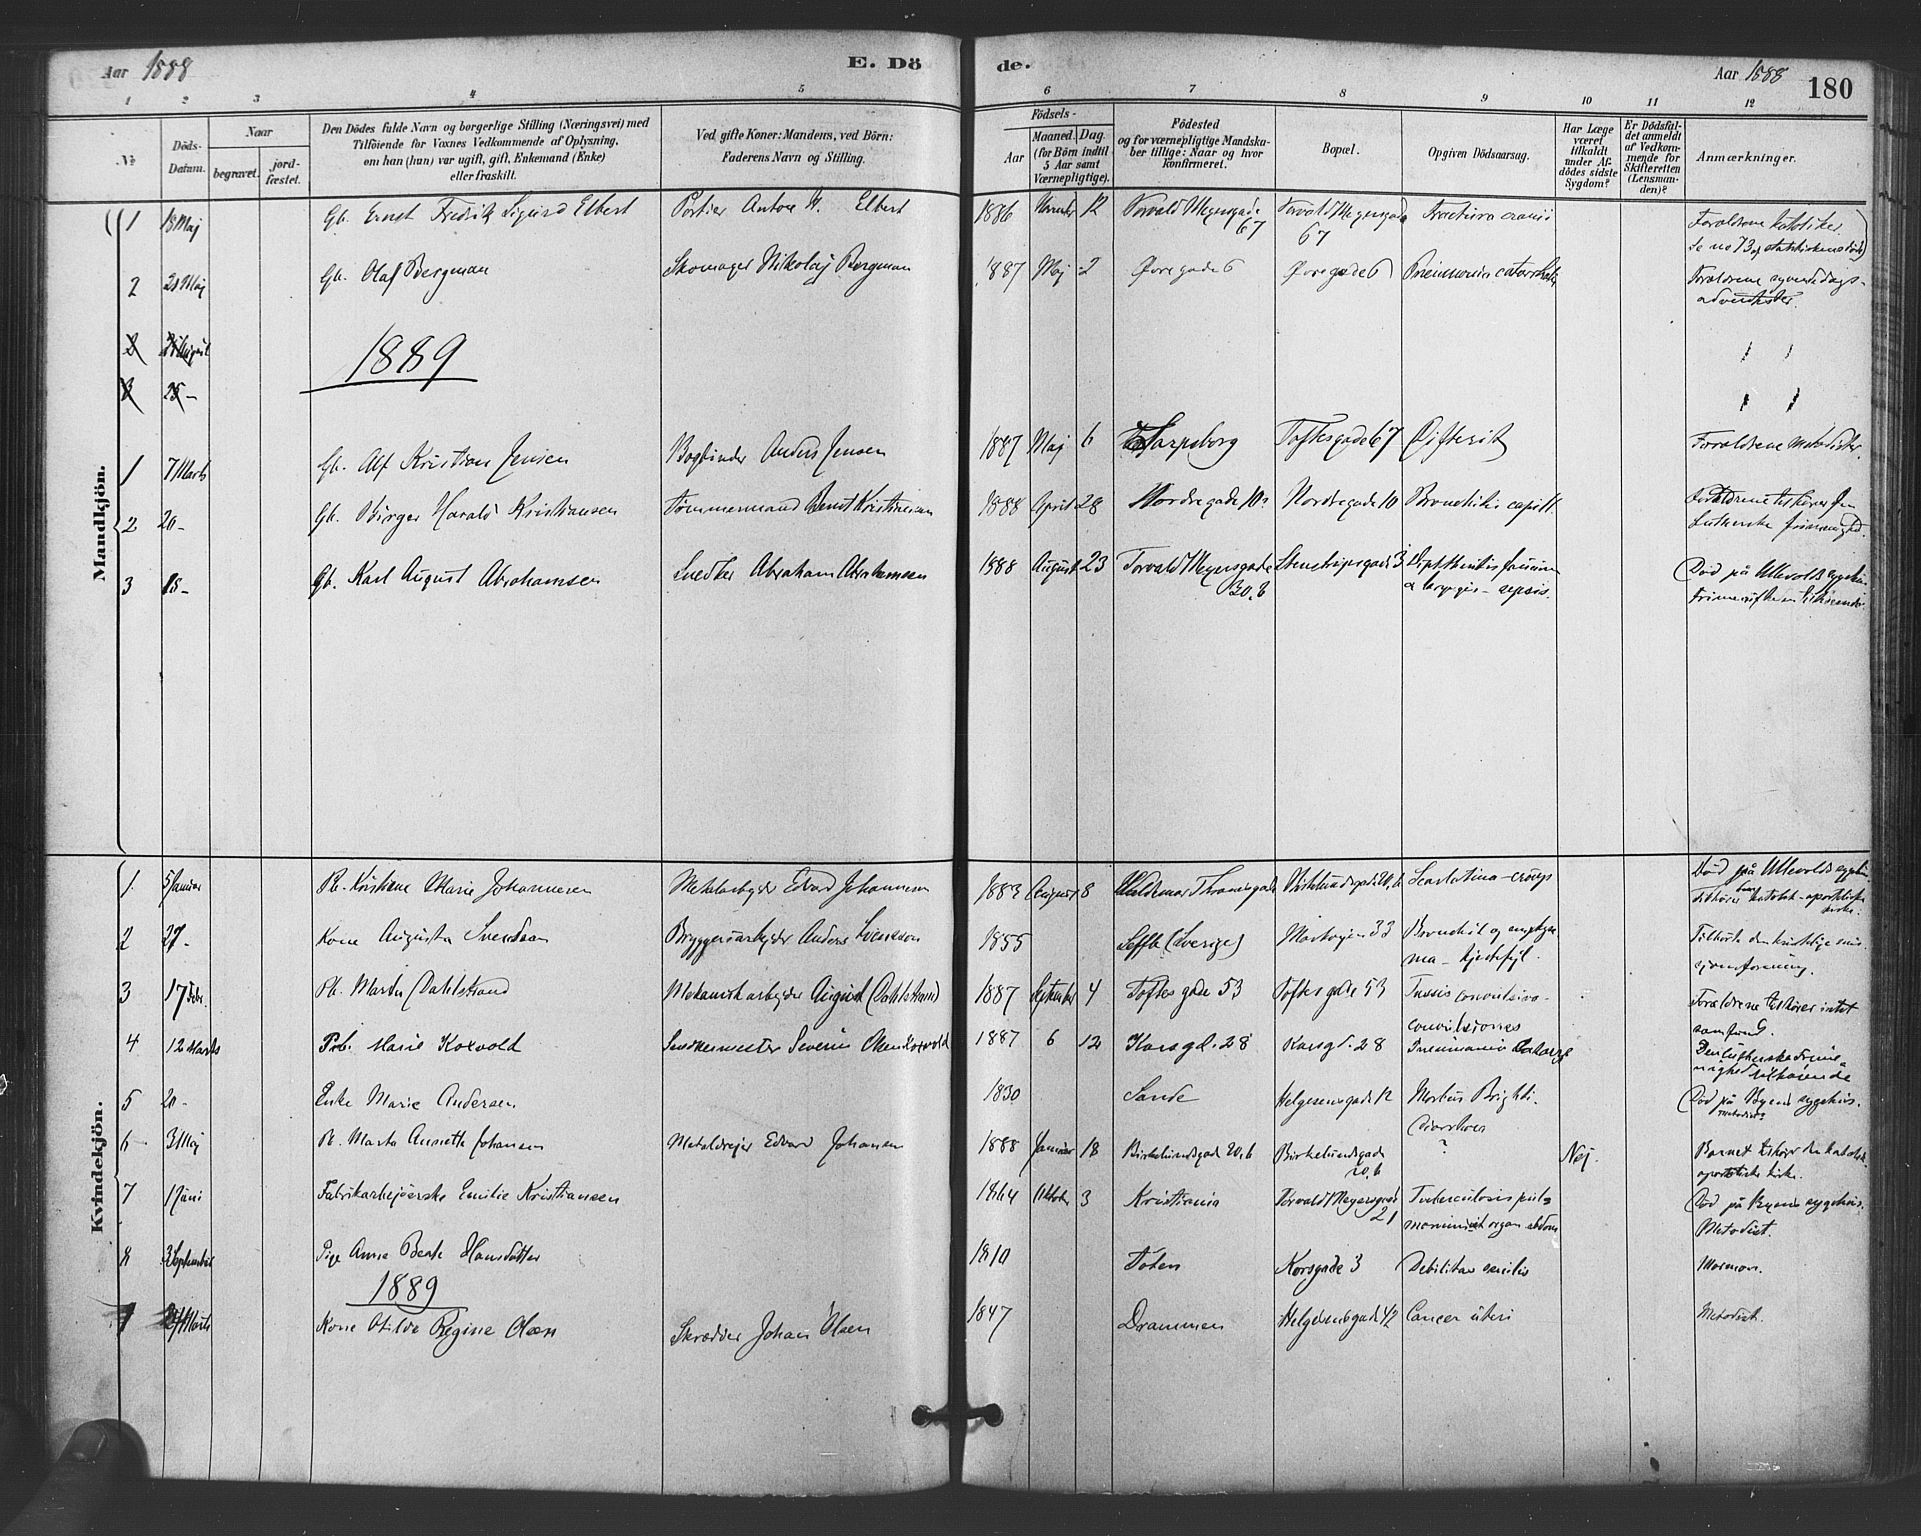 Aar 1888
E. Dö
de.
Aar 1888
180
1 2 3 4 5 6 7 8 9 10 11 12
No
Döds-Datum.
Naar
begravet. jord-fæstet.
Den Dödes fulde Navn og borgerlige Stilling (Næringsvei) med
Tilföiende for Voxnes Vedkommende af Oplysning,
om han (hun) var ugift, gift, Enkemand (Enke)
eller fraskilt.
Ved gifte Koner: Mandens, ved Börn:
Faderens Navn og Stilling.
Födsels-
Aar
Maaned. Dag.
(for Börn indtil
5 Aar samt
Værnepligtige).
Födested
og for værnepligtige Mandska-
ber tillige: Naar og hvor
konfirmeret.
Bopæl.
Opgiven Dödsaarsag.
Har Læge
været
tilkaldt
under Af-
dödes sidste
Sygdom?
Er Dödsfal-
det anmeldt
af Vedkom-
mende for
Skifteretten
(Lensman-
den)?
Anmærkninger.
Mandkjön.
1 18 Maj Gb. Ernst Fredrik Sigurd Elbert Portier Anton M. Elbert 1886 12 Torvald Meyersgade 67 Torvald Meyersgade 67 Fractura cranii Forældrene katoliker.
Se no 73
2 21 Maj Gb. Olaf Bergman Skomager Nikolaj Bergman 1887 Maj 2 Øvregade 6 Øvregade 6 Pneumonia catarrhalis Forældrene syvendedags-
adventister.
2 August
1889
3 25 -
1 7 Marts Gb. Alf Kristian Jensen Bogbinder Anders Jensen 1887 Maj 6 Sarpsborg Toftesgade 67 Difterit Forældrene Metodister.
2 20 - Gb. Birger Harald Kristiansen Tømmermand Bernt Kristiansen 1888 April 28 Nordregade 10 Nordregade 10 Bronchitis capill. Forældrene tilhører den
Lutherske frimenighed.
3 18 - Gb. Karl August Abrahamsen Snedker Abraham Abrahamsen 1888 August 23 Torvald Meyersgade 30.b Stenstrupsgade 3 Diphtheritis faucium
& laryngis - sepsis. Død på Ullevolds sygehus.
Kvindekjön.
1. 5 Januar Pb. Kristiane Marie Johannesen Metalarbejder Edvard Johannesen 1883 August 8 Valdemar Thranesgade Birkelundsgade 20, b Scarlatina - croup Død på Ullevolds sygehus.
tilhører den katolsk-apostoliske
kirke.
2 27 - Kone Augusta Svendsen Bryggeriarbejder Anders Svensson 1855 Seffle (Sverige) Mosvejen 33 Bronchit og emphyse-
ma - hjertefejl. Tilhørte den kristelige mis-
sjonsforening.
3 17 Febr. Pb. Martha Dahlstrand Mekanisk arbejder August Dahlstrand 1887 September 4 Toftes gade 53 Toftes gade 53 Tussis convulsiva -
convulsiones Forældrene tilhører intet
samfund.
4 12 Marts Pb. Marie Koxvold Snedkermester Severin Olsen Koxvold 1887 6 12 Korsgd. 28 Korsgd. 28 Pneumonia Catarrh Den lutherske Frime-
nighed tilhørende
5 21 - Enke Marie Andersen 1830 Sande Helgesensgade 12 Morbus Brightii.
Diarrhoea Død på Byens sygehus.
Metodist
6 3 Maj Pb. Marta Annette Johansen Metaldrejer Edvard Johansen 1888 Januar 18 Birkelundsgade 20, b Birkelundsgade 20, b ? Nej. Barnet tilhører den katolsk
apostoliske kirke.
7 1 Juni Fabrikarbejderske Emilie Kristiansen 1864 Oktober 3 Kristiania Torvald Meyersgade 21 Tuberculosis pul-
monum et organ. abdom. Død på Byens sygehus.
Metodist.
8 3 September Pige Anne Beate Hansdatter 1810 Toten Korsgade 3 Debilitas senilis Mormon.
1889
1 Marts Kone Otilde Regine Olsen Skrædder Johan Olsen 1847 Drammen Helgesensgade 42 Cancer uteri Metodist.